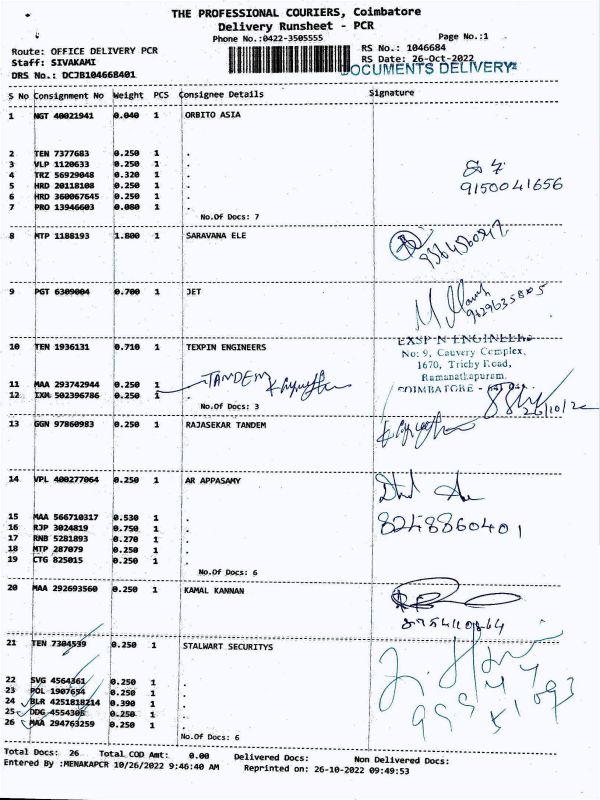 THE PROFESSIONAL COURIERS, Coimbatore
Delivery Runsheet - PCR
Phone No.:0422-3505555
Page No.:1
Route: OFFICE DELIVERY PCR
RS No.: 1046684
Staff: SIVAKAMI
RS Date: 26-Oct-2022
DOCUMENTS DELIVERY
DRS No.: DCJB104668401
S No Consignment No Weight PCS Consignee Details Signature
1 NGT 40021941 0.040 1 ORBITO ASIA
2 TEN 7377683 0.250 1 .
3 VLP 1120633 0.250 1 .
4 TRZ 56929048 0.320 1 .
5 HRD 20118108 0.250 1 .
6 HRD 360067645 0.250 1 .
7 PRO 13946603 0.080 1 .
9150041656
No.Of Docs: 7
8 MTP 1188193 1.800 1 SARAVANA ELE
9 PGT 6309004 0.700 1 JET
10 TEN 1936131 0.710 1 TEXPIN ENGINEERS
No: 9, Cauvery Complex,
1670, Trichy Road,
Ramanathapuram,
COIMBATORE -
11 MAA 293742944 0.250 1 TANDEM
12 IXM 502396786 0.250 1 .
No.Of Docs: 3
26/10/22
13 GGN 97860983 0.250 1 RAJASEKAR TANDEM
14 VPL 400277064 0.250 1 AR APPASAMY
15 MAA 566710317 0.530 1 .
16 RJP 3024819 0.750 1 .
17 RNB 5281893 0.270 1 .
18 MTP 287079 0.250 1 .
19 CTG 825015 0.250 1 .
8248860401
No.Of Docs: 6
20 MAA 292693560 0.250 1 KAMAL KANNAN
21 TEN 7304539 0.250 1 STALWART SECURITYS
22 SVG 4564361 0.250 1 .
23 POL 1907654 0.250 1 .
24 BLR 4251818214 0.390 1 .
25 DDG 4554305 0.250 1 .
26 MAA 294763259 0.250 1 .
No.Of Docs: 6
Total Docs: 26 Total COD Amt: 0.00 Delivered Docs: Non Delivered Docs:
Entered By :MENAKAPCR 10/26/2022 9:46:40 AM Reprinted on: 26-10-2022 09:49:53